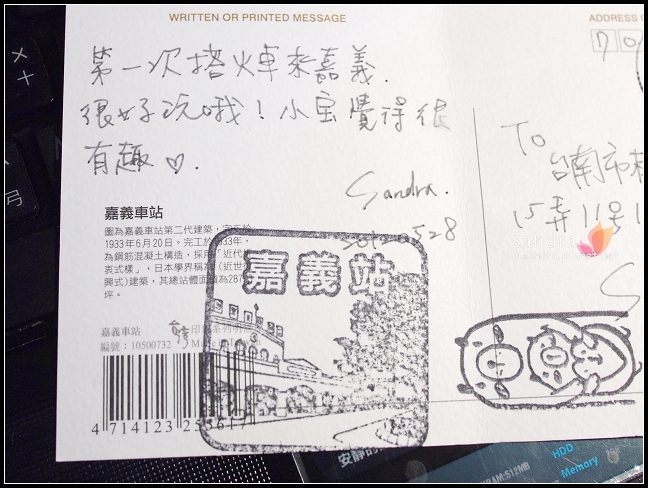 WRITTEN OR PRINTED MESSAGE
ADDRESS
第一次搭火車來嘉義.
很好玩哦！小宝覺得很
有趣♡.
Sandra.
20120528
70
To
台南市
15弄11號1
S
嘉義車站
圖為嘉義車站第二代建築，
1933年6月20日。完工於1933年，
為鋼筋混凝土構造，採用「近代
衷式樣」，日本學界稱為(近世
興式)建築，其總站體面積為287
坪。
嘉義車站
編號：10500732
嘉義站
4 714123 255617
Sandra
弓
安靜的
HDD
Memory
RAM:512MB